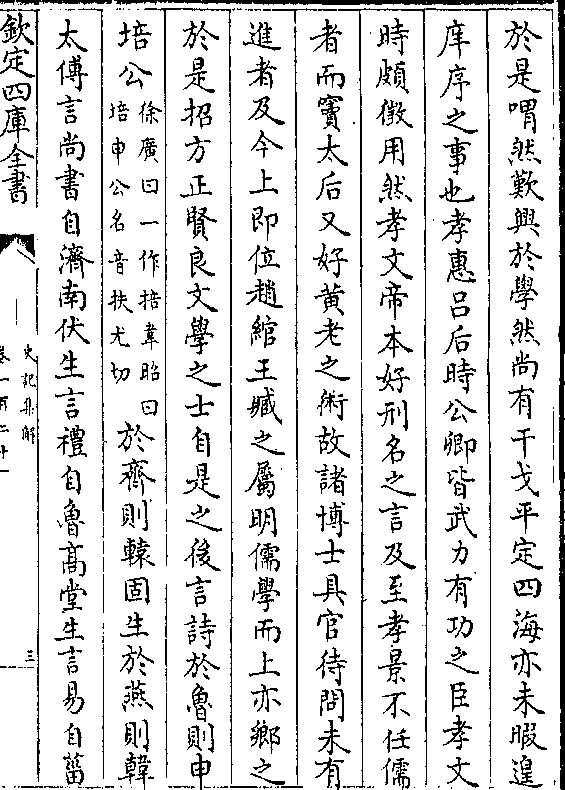 於是喟然歎興於學然尚有干戈平定四海亦未暇遑
庠序之事也孝惠吕后時公卿皆武力有功之臣孝文
時頗徴用然孝文帝本好刑名之言及至孝景不任儒
者而竇太后又好黄老之術故諸博士具官待問未有
進者及今上即位趙綰王臧之屬明儒學而上亦鄉之
於是招方正賢良文學之士自是之後言詩於魯則申
培公徐廣曰一作掊韋昭曰培申公名音扶尤切於齊則轅固生於燕則韓
太傅言尚書自濟南伏生言禮自魯髙堂生言易自菑
欽定四庫全書
史記集解
三